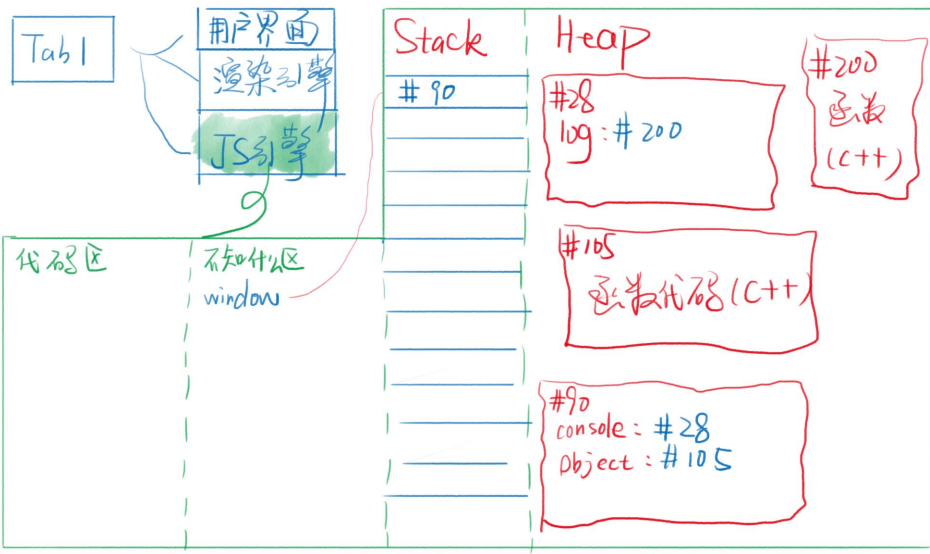 Tab1
用户界面
渲染引擎
JS引擎
代码区
不知什么区
window
Stack
#90
Heap
#28
log:#200
#200
函数
(C++)
#105
函数代码(C++)
#90
console:#28
Object:#105